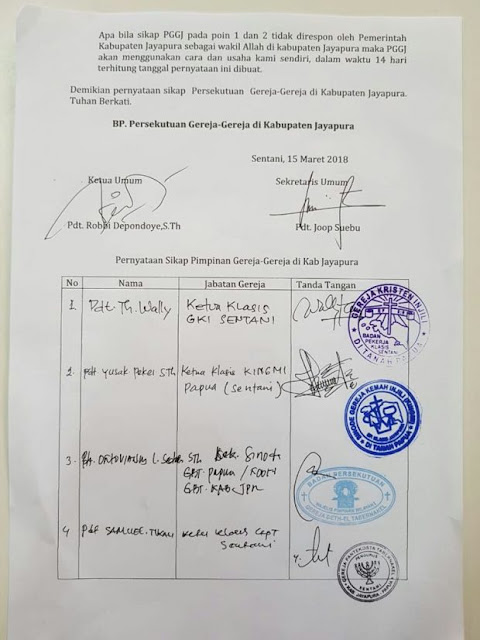 Apa bila sikap PGGJ pada poin 1 dan 2 tidak direspon oleh Pemerintah
Kabupaten Jayapura sebagai wakil Allah di kabupaten Jayapura maka PGGJ
akan menggunakan cara dan usaha kami sendiri, dalam waktu 14 hari
terhitung tanggal pernyataan ini dibuat.
Demikian pernyataan sikap Persekutuan Gereja-Gereja di Kabupaten Jayapura.
Tuhan Berkati.
BP. Persekutuan Gereja-Gereja di Kabupaten Jayapura
Sentani, 15 Maret 2018
Ketua Umum Sekretaris Umum
Pdt. Robbi Depondoye,S.Th Pdt. Joop Suebu
Pernyataan Sikap Pimpinan Gereja-Gereja di Kab Jayapura
No Nama Jabatan Gereja Tanda Tangan
1. Pdt. Th. Wally Ketua Klasis
GKI SENTANI
GEREJA KRISTEN INJILI
BADAN
PEKERJA
KLASIS
SENTANI
DI TANAH PAPUA
2. Pdt Yusak Pekei STh Ketua Klasis KINGMI
Papua (Sentani)
GEREJA KEMAH INJIL
DI TANAH PAPUA
3. STh Sinode
GBT. Papua
GBT. KAB JPR
BADAN PERSEKUTUAN
4 Pdt SAMUEL
Sentani
4.
SENTANI
KAB JAYAPURA